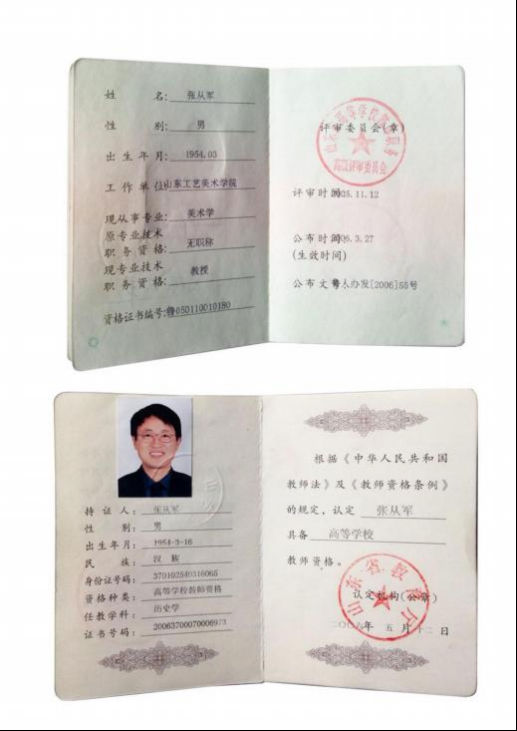 姓 名: 张从军
性 别: 男
出生年月: 1954.03
工作单位山东工艺美术学院
现从事专业: 美术学
原专业技术
职务资格: 无职称
现专业技术
职务资格: 教授
资格证书编号:鲁050110010180
评审委员会(章)
评审时间2005.11.12
公布时间2006.3.27
(生效时间)
公布文号 人办发[2006]55号
持证人: 张从军
性 别: 男
出生年月: 1954-3-16
民 族: 汉族
身份证号码: 370102540316065
资格种类: 高等学校教师资格
任教学科: 历史学
证书号码: 20063700070006973
根据《中华人民共和国
教师法》及《教师资格条例》
的规定, 认定 张从军
具备 高等学校
教师资格。
山东省教育厅
认定机构(公章)
二〇〇六年 五 月十二日